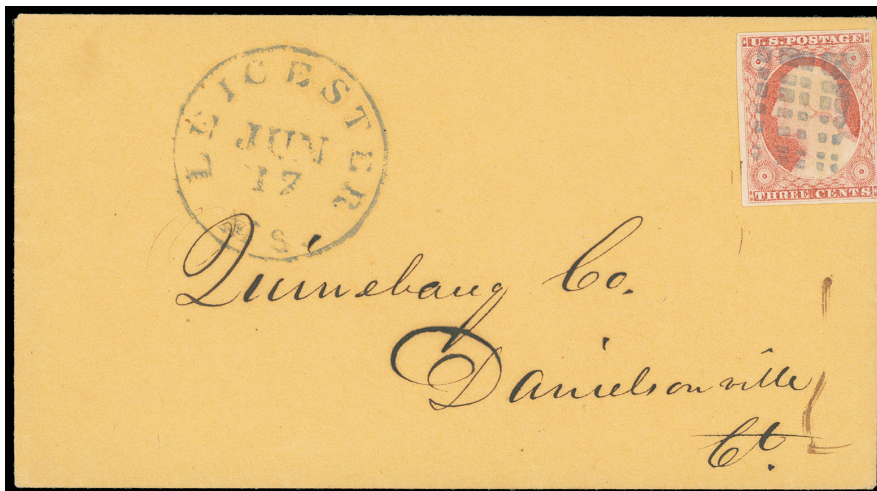 LEICESTER
JUN
17
U.S. POSTAGE
THREE CENTS
Quinebaug Co.
Danielsonville
Ct.